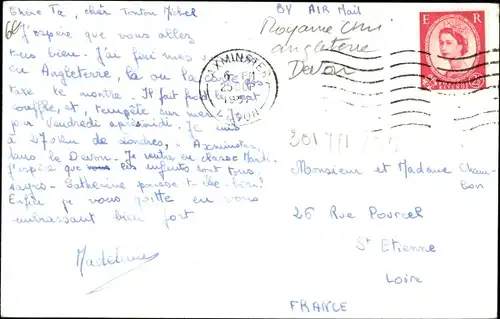 Chère Ta, cher Tonton Michel
J'espère que vous allez
tous bien. J'ai fini mes
en Angleterre, là ou la
le montre. Il fait froid le vent
souffle, et, tempête sur mes
par Vendredi après midi. Je suis
à 250 km de Londres, Axminster
dans le Devon. Je rentre en classe Mardi.
J'espère que vos enfants sont tous
sages. Catherine pousse t-elle bien?
Enfin je vous quitte en vous
embrassant bien fort
Madeleine
BY AIR Mail
Royaume Uni
angleterre
Devon
AXMINSTER
DEVON
E R
201771
Monsieur et Madame Chambon
26 Rue Pourcel
St Etienne
Loire
FRANCE